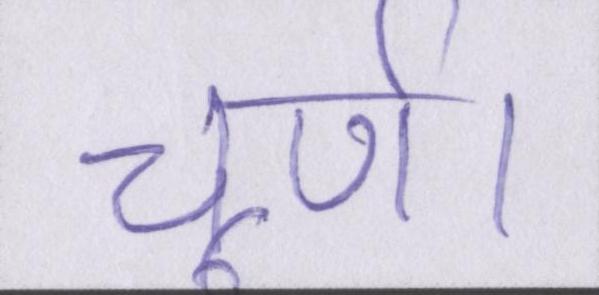 चूर्ण।